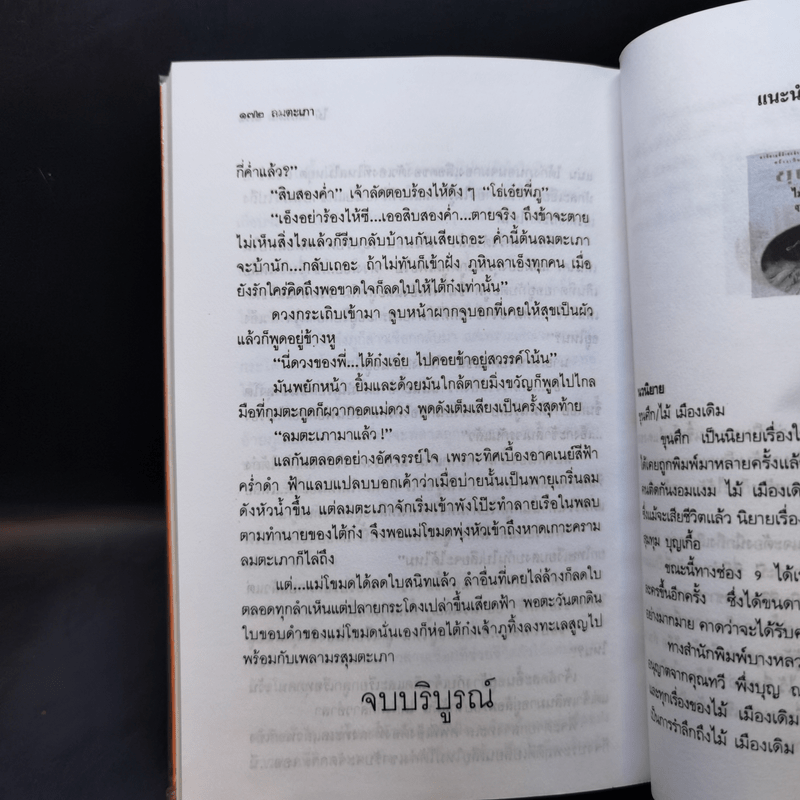 ๑๗๒ ลมตะเภา
กี่ค่ำแล้ว?"
"สิบสองค่ำ" เจ้าลัดตอบร้องไห้ดัง ๆ "โธ่เอ๋ยพี่ภู"
"เอ็งอย่าร้องไห้ซี...เออสิบสองค่ำ...ตายจริง ถึงข้าจะตาย
ไม่เห็นสิ่งไรแล้วก็รีบกลับบ้านกันเสียเถอะ ค่ำนี้ต้นลมตะเภา
จะบ้านัก...กลับเถอะ ถ้าไม่ทันก็เข้าฝั่ง ภูหินลาเอ็งทุกคน เมื่อ
ยังรักใคร่คิดถึงพอขาดใจก็ลดใบให้ไต้ก๋งเท่านั้น"
ดวงกระเถิบเข้ามา จูบหน้าผากจูบอกที่เคยให้สุขเป็นผัว
แล้วก็พูดอยู่ข้างหู
"นี่ดวงของพี่...ไต้ก๋งเอ๋ย ไปคอยข้าอยู่สวรรค์โน้น"
มันพยักหน้า ยิ้มและด้วยมันใกล้ตายมิ่งขวัญก็พูดไปไกล
มือที่กุมตะกูดก็ผวากอดแม่ดวง พูดดังเต็มเสียงเป็นครั้งสุดท้าย
"ลมตะเภามาแล้ว!"
แลกันตลอดอย่างอัศจรรย์ใจ เพราะทิศเบื้องอาคเนย์สีฟ้า
คร่ำดำ ฟ้าแลบแปลบบอกเค้าว่าเมื่อบ่ายนั้นเป็นพายุเกริ่นลม
ดังหัวน้ำขึ้น แต่ลมตะเภาจักเริ่มเข้าพังโป๊ะทำลายเรือในพลบ
ตามทำนายของไต้ก๋ง จึงพอแม่โขมดพุ่งหัวเข้าถึงหาดเกาะคราม
ลมตะเภาก็ไล่ถึง
แต่...แม่โขมดได้ลดใบสนิทแล้ว ลำอื่นที่เคยไล่ล้างก็ลดใบ
ตลอดทุกลำเห็นแต่ปลายกระโดงเปล่าขึ้นเสียดฟ้า พอตะวันตกดิน
ใบขอบดำของแม่โขมดนั่นเองก็ห่อไต้ก๋งเจ้าภูทิ้งลงทะเลสูญไป
พร้อมกับเพลามรสุมตะเภา
จบบริบูรณ์
แนะนำ
นวนิยาย
ขุนศึก/ไม้ เมืองเดิม
ขุนศึก เป็นนิยายเรื่อง
ได้เคยถูกพิมพ์มาหลายครั้งแล้
คนติดกันงอมแงม ไม้ เมืองเดิม
ซึ่งแม้จะเสียชีวิตแล้ว นิยายเรื่อง
สุมทุม บุญเกื้อ
ขณะนี้ทางช่อง ๙ ได้
ละครขึ้นอีกครั้ง ซึ่งได้ขนดา
อย่างมากมาย คาดว่าจะได้รับค
ทางสำนักพิมพ์บางหลว
อนุญาตจากคุณทวี พึ่งบุญ ณ
และทุกเรื่องของไม้ เมืองเดิม
เป็นการรำลึกถึงไม้ เมืองเดิม